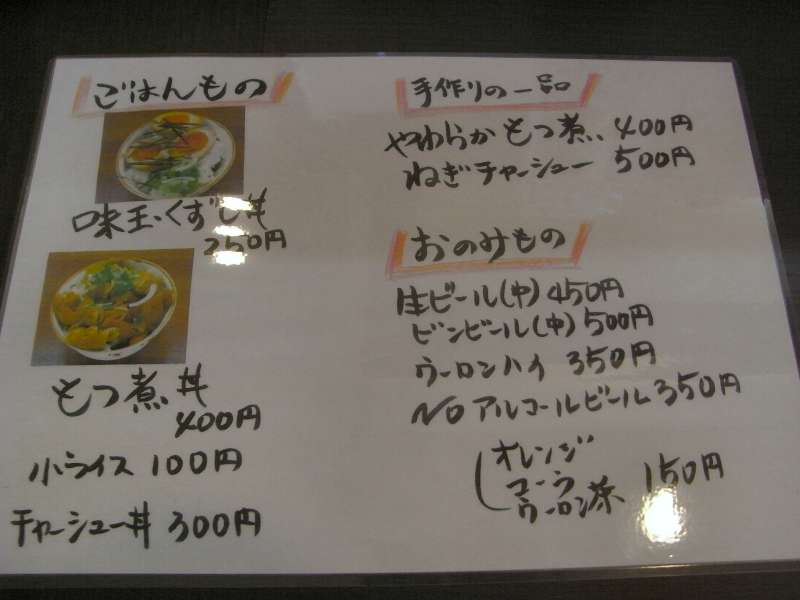 ごはんもの
味玉・くずし丼
250円
もつ煮丼
400円
小ライス 100円
チャーシュー丼 300円
手作りの一品
やわらかもつ煮.. 400円
ねぎチャーシュー 500円
おのみもの
生ビール(中) 450円
ビンビール(中) 500円
ウーロンハイ 350円
NOアルコールビール 350円
オレンジ
コーラ
ウーロン茶 150円